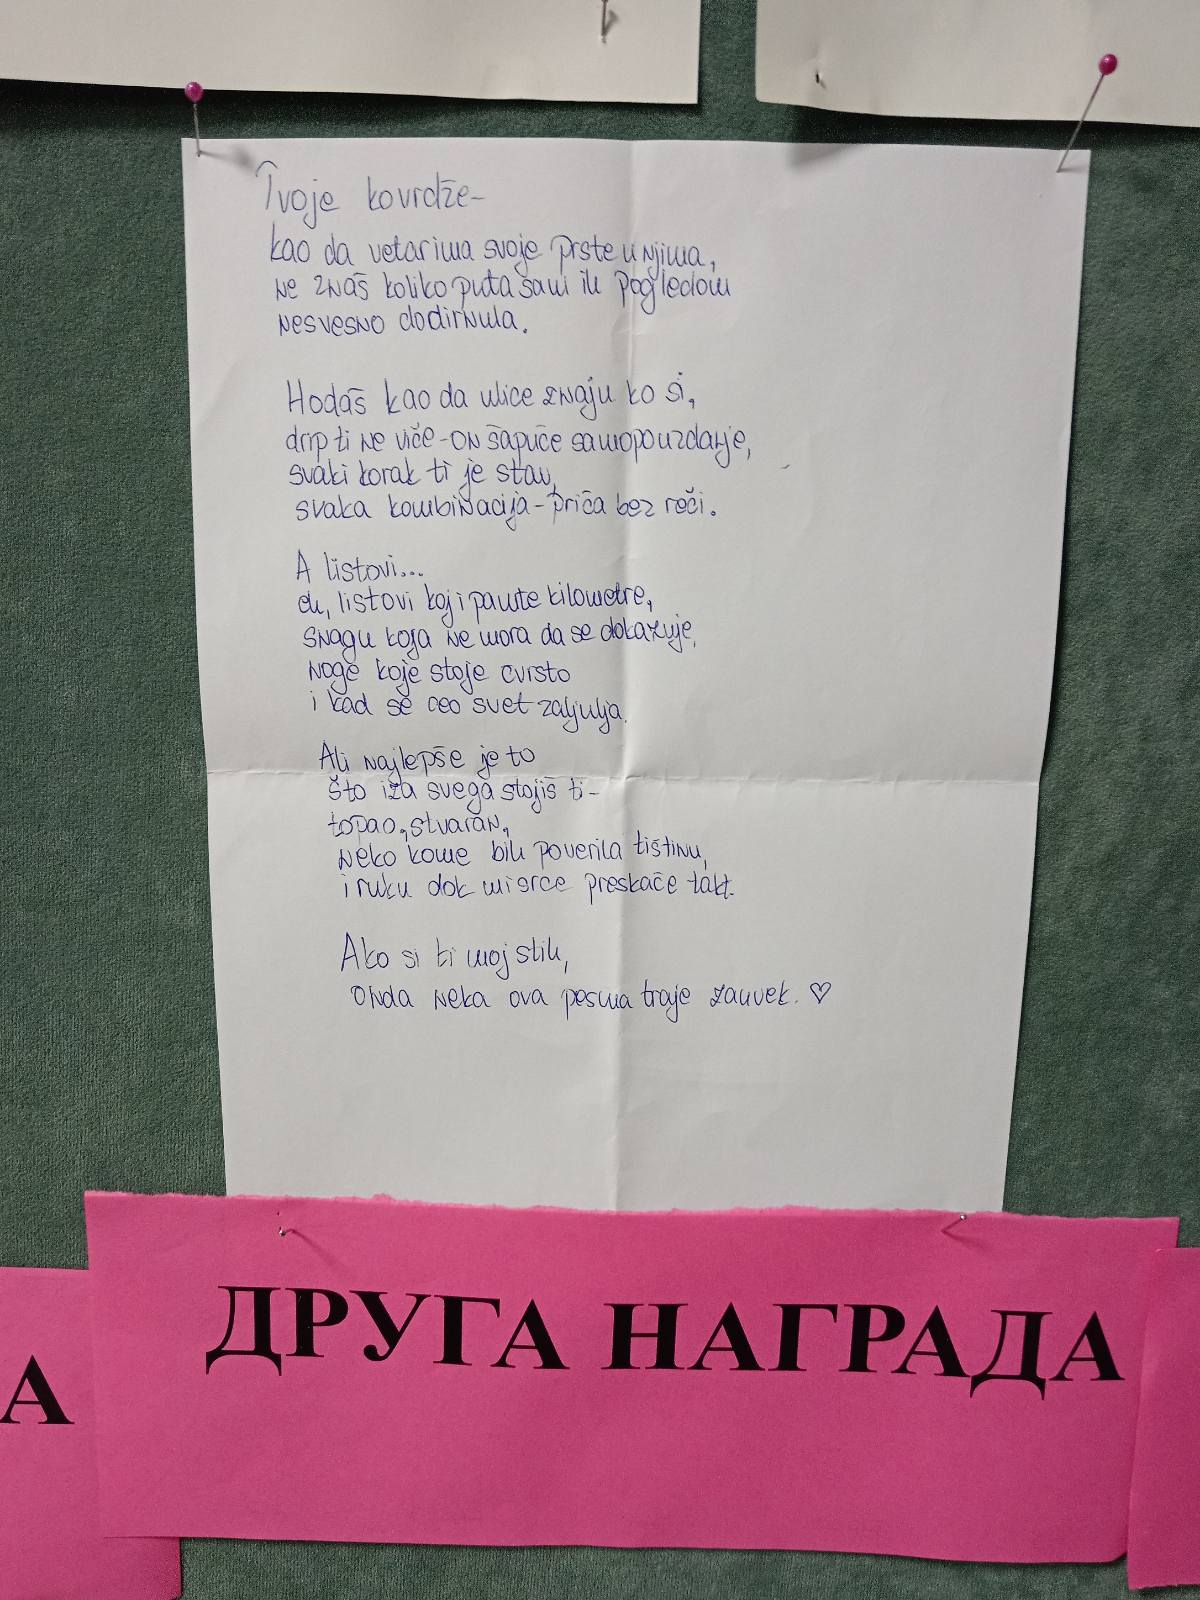 Tvoje kovrdže-
kao da vetar ima svoje prste u njima,
ne znaš koliko puta sam ih pogledom
nesvesno dodirnula.
Hodaš kao da ulice znaju ko si,
drip ti ne viče-on šapuće samopouzdanje,
svaki korak ti je stav,
svaka kombinacija-priča bez reči.
A listovi...
eh, listovi koji pamte kilometre,
snagu koja ne mora da se dokazuje,
noge koje stoje čvrsto
i kad se ceo svet zaljulja.
Ali najlepše je to
što iza svega stojiš ti-
topao, stvaran,
neko kome bih poverila tištinu,
i ruku dok mi srce preskače takt.
Ako si ti moj stih,
Onda neka ova pesma traje zauvek. ♡
ДРУГА НАГРАДА
А